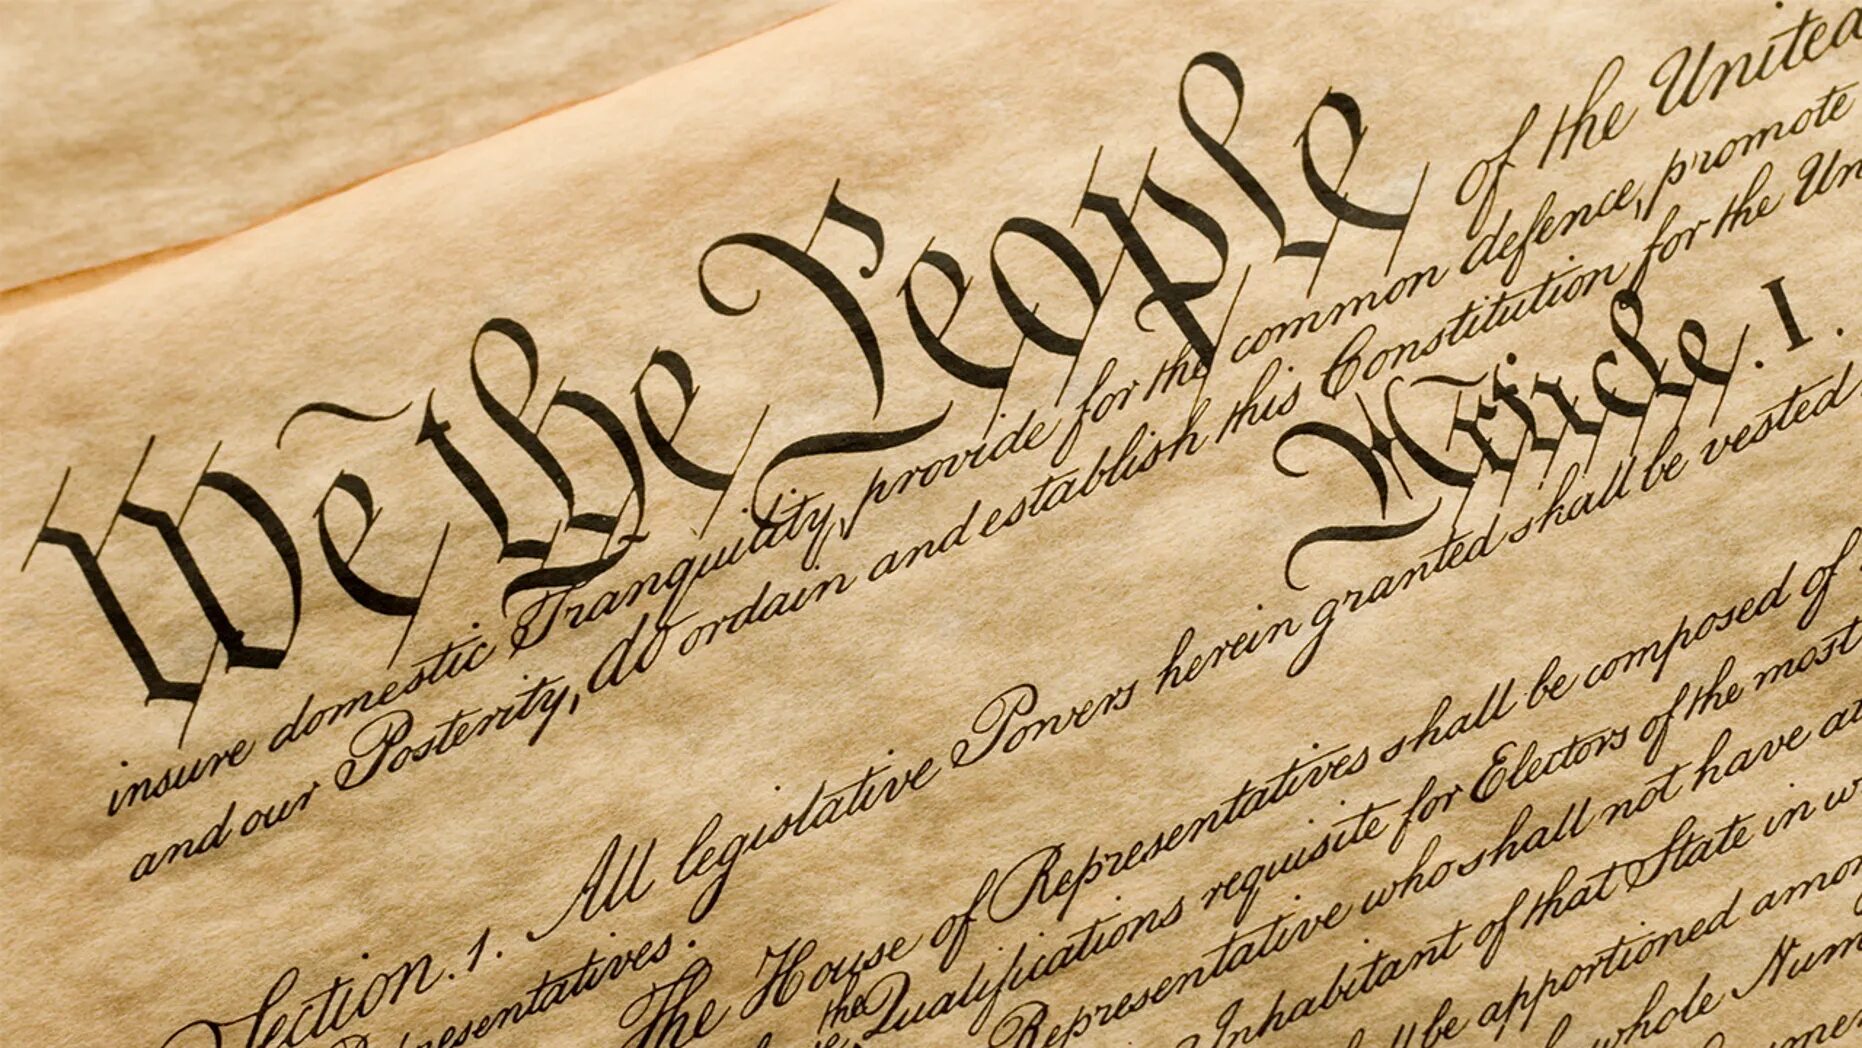 We the People of the United
insure domestic Tranquility, provide for the common defence, promote
and our Posterity, do ordain and establish this Constitution for the Un
Article. I.
Section. 1. All legislative Powers herein granted shall be vested
Representatives.
The House of Representatives shall be composed of
the Qualifications requisite for Electors of the most
Representative who shall not have at
Inhabitant of that State in w
be apportioned amon
whole Num